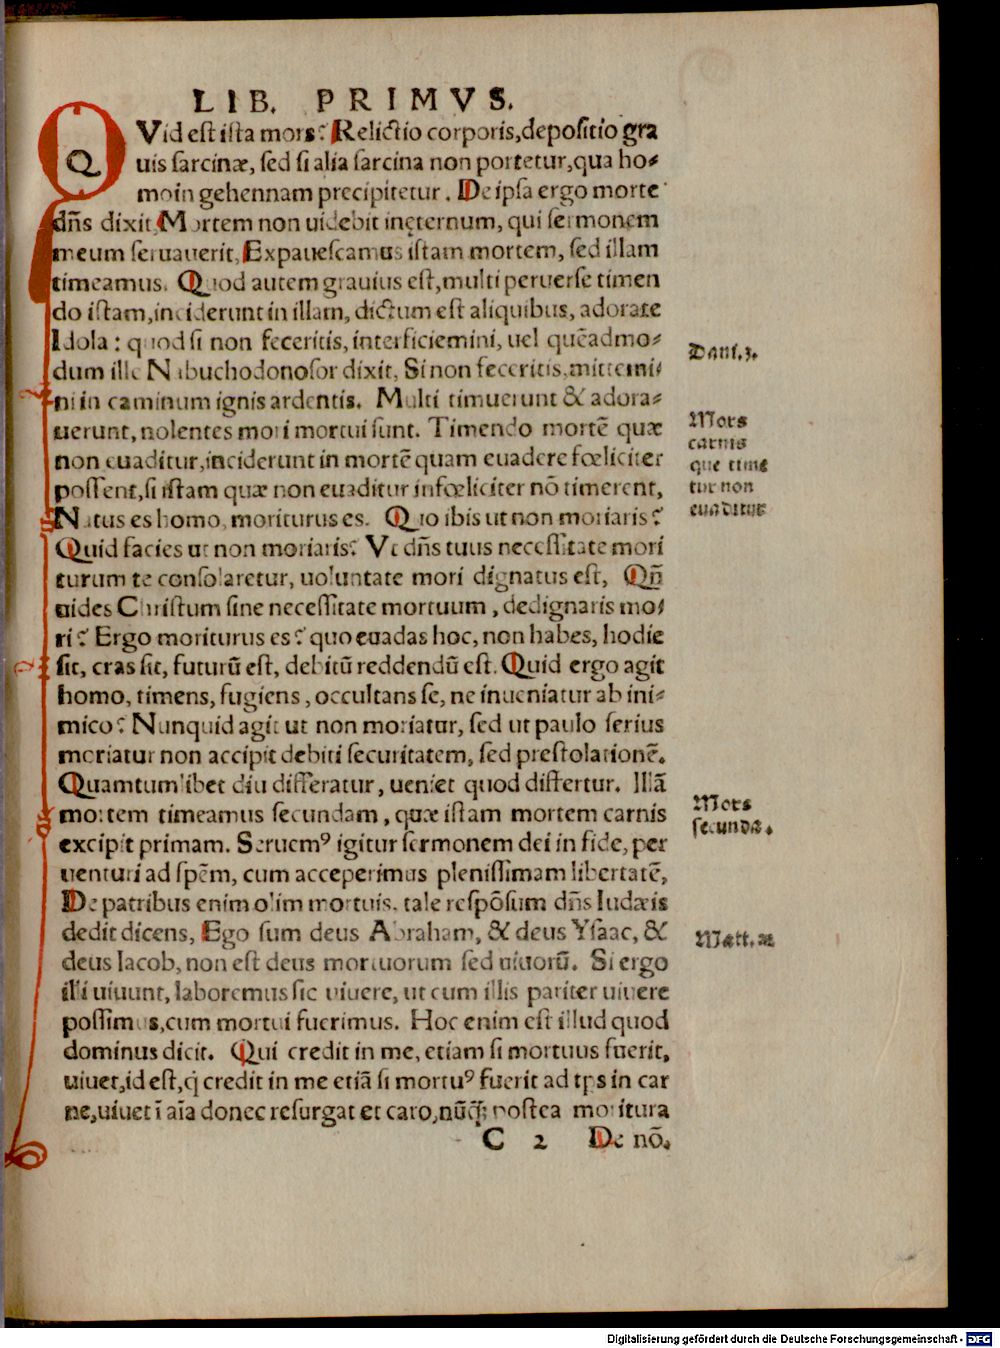 LIB. PRIMVS.
QVid est ista mors? Relictio corporis, depositio gra
uis sarcinæ, sed si alia sarcina non portetur, qua ho-
mo in gehennam precipitetur. De ipsa ergo morte
dn̄s dixit, Mortem non uidebit inęternum, qui sermonem
meum seruauerit, Expauescamus istam mortem, sed illam
timeamus. Quod autem grauius est, multi peruerse timen
do istam, inciderunt in illam, dictum est aliquibus, adorate
Idola: quod si non feceritis, interficiemini, uel quēadmo-
dum ille Nabuchodonosor dixit, Si non feceritis, mittemi-
ni in caminum ignis ardentis. Multi timuerunt & adora-
uerunt, nolentes mori mortui sunt. Timendo mortē quæ
non euaditur, inciderunt in mortē quam euadere fœliciter
possent, si istam quæ non euaditur infœliciter nō timerent,
Natus es homo, moriturus es. Quo ibis ut non moriaris?
Quid facies ut non moriaris? Vt dn̄s tuus necessitate mori
turum te consolaretur, uoluntate mori dignatus est, Qn̄
uides Christum sine necessitate mortuum, dedignaris mo-
ri? Ergo moriturus es? quo euadas hoc, non habes, hodie
sit, cras sit, futurū est, debitū reddendū est. Quid ergo agit
homo, timens, fugiens, occultans se, ne inueniatur ab ini-
mico? Nunquid agit ut non moriatur, sed ut paulo serius
moriatur non accipit debiti securitatem, sed prestolationē.
Quamtumlibet diu differatur, ueniet quod differtur. Illā
mortem timeamus secundam, quæ istam mortem carnis
excipit primam. Seruemꝰ igitur sermonem dei in fide, per
uenturi ad spēm, cum acceperimus plenissimam libertatē,
De patribus enim olim mortuis, tale respōsum dn̄s Iudæis
dedit dicens, Ego sum deus Abraham, & deus Ysaac, &
deus Iacob, non est deus mortuorum sed uiuorū. Si ergo
illi uiuunt, laboremus sic uiuere, ut cum illis pariter uiuere
possimus, cum mortui fuerimus. Hoc enim est illud quod
dominus dicit. Qui credit in me, etiam si mortuus fuerit,
uiuet, id est, q̇ credit in me etiā si mortuꝰ fuerit ad tp̄s in car
ne, uiuet ī aīa donec resurgat et caro, nūq̄ꝫ postea moritura
C 2 De nō.
Dani.3.
Mors
carnis
que time
tur non
euaditur
Mors
secunda.
Matt.
Digitalisierung gefördert durch die Deutsche Forschungsgemeinschaft - DFG